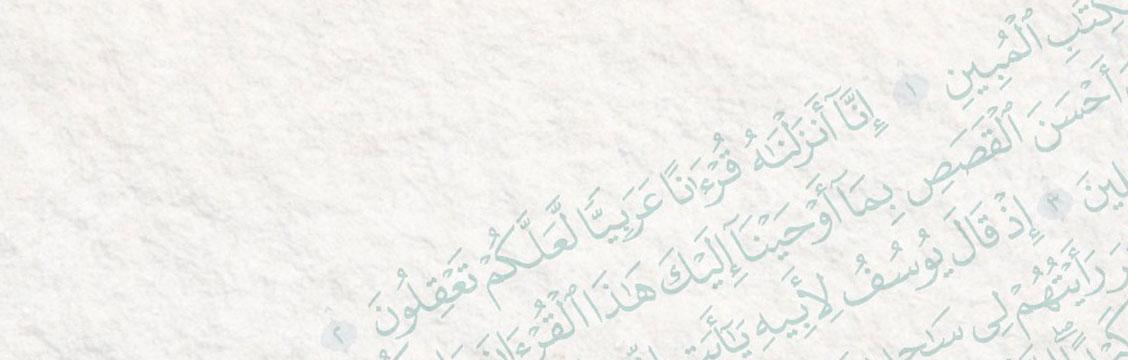 كِتَٰبِ ٱلْمُبِينِ ١ إِنَّآ أَنزَلْنَٰهُ قُرْءَٰنًا عَرَبِيًّا لَّعَلَّكُمْ تَعْقِلُونَ ٢
أَحْسَنَ ٱلْقَصَصِ بِمَآ أَوْحَيْنَآ إِلَيْكَ هَٰذَا ٱلْقُرْءَانَ
لِينَ ٣ إِذْ قَالَ يُوسُفُ لِأَبِيهِ يَٰٓأَبَتِ
رَأَيْتُهُمْ لِى